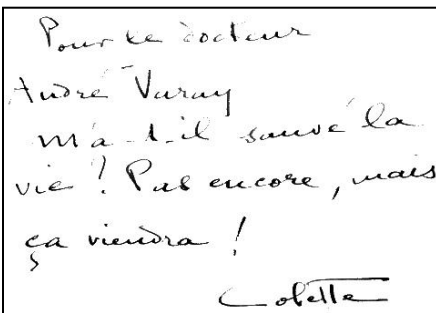 Pour le docteur
André Varay
M'a-t-il sauvé la
vie ? Pas encore, mais
ça viendra !
Colette